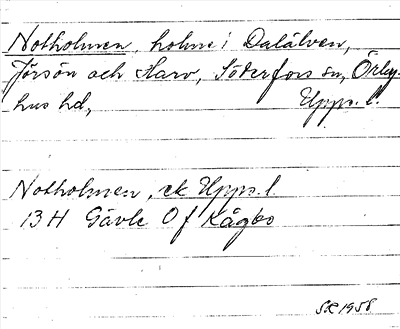 Notholmen, holme i Dalälven,
Jörsön och Harv, Söderfors sn, Örby-
hus hd, Upps. l.
Notholmen, ek Upps. l
13 H Gävle 0 f Kågbo
SR 1958